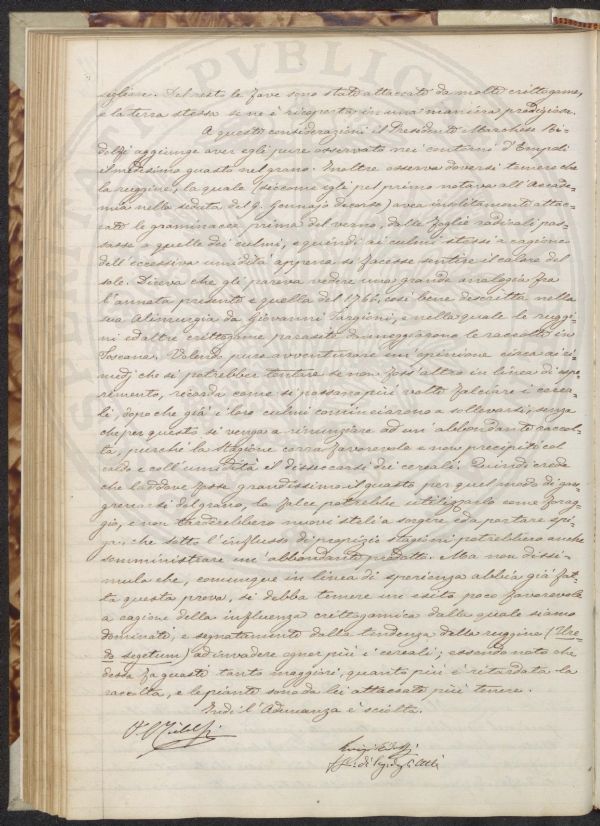 egliare. Del resto le fave sono state attaccate da molte crittogame,
e la terra stessa se ne è ricoperta in una maniera prodigiosa.
A queste considerazioni il Presidente Marchese Ri-
dolfi aggiunge aver egli pure osservato nei contorni d'Empoli
il medesimo guasto nel grano. Inoltre osserva doversi temere che
la ruggine, la quale (siccome egli pel primo notava all'Accade-
mia nella seduta del 9. Gennajo decorso) avea insolitamente attac-
cato le graminacee prima del verno, dalle foglie radicali pas-
sasse a quelle dei culmi, e quindi ai culmi stessi a cagione
dell'eccessiva umidità appena si facesse sentire il calore del
sole. Diceva che gli pareva vedere una grande analogia fra
l'annata presente e quella del 1766, così bene descritta nella
sua Alimurgia da Giovanni Targioni, e nella quale le ruggi-
ni ed altre crittogame parasite danneggiarono le raccolte in
Toscana. Volendo pure avventurare un'opinione circa ai ri-
medj che si potrebber tentare se non foss'altro in linea di espe-
rimento, ricorda come si possano più volte falciare i cerea-
li, dopo che già i loro culmi cominciarono a sollevarsi, senza
che per questo si venga a rinunziare ad un'abbondante raccol-
ta, purchè la stagione corra favorevole e non precipiti col
caldo e coll'umidità il disseccarsi dei cereali. Quindi crede
che laddove fosse grandissimo il guasto per quel modo di gan-
grenarsi del grano, la falce potrebbe utilizzarlo come forag-
gio, e non tarderebbero nuovi steli a sorgere ed a portare spi-
ghe, che sotto l'influsso di propizie stagioni potrebbero anche
somministrare un'abbondante prodotto. Ma non dissi-
mula che, comunque in linea di sperienza abbia già fat-
ta questa prova, si debba temere un esito poco favorevole
a cagione della influenza crittogamica dalla quale siamo
dominati, e segnatamente dalla tendenza della ruggine (Ure-
do segetum) ad invadere ognor più i cereali; essendo noto che
dessa fa guasti tanto maggiori, quanto più è ritardata la
raccolta, e le piante sono da lei attaccate più tenere.
Indi l'Adunanza è sciolta.
Ridolfi
Luigi
Seg. degli Atti